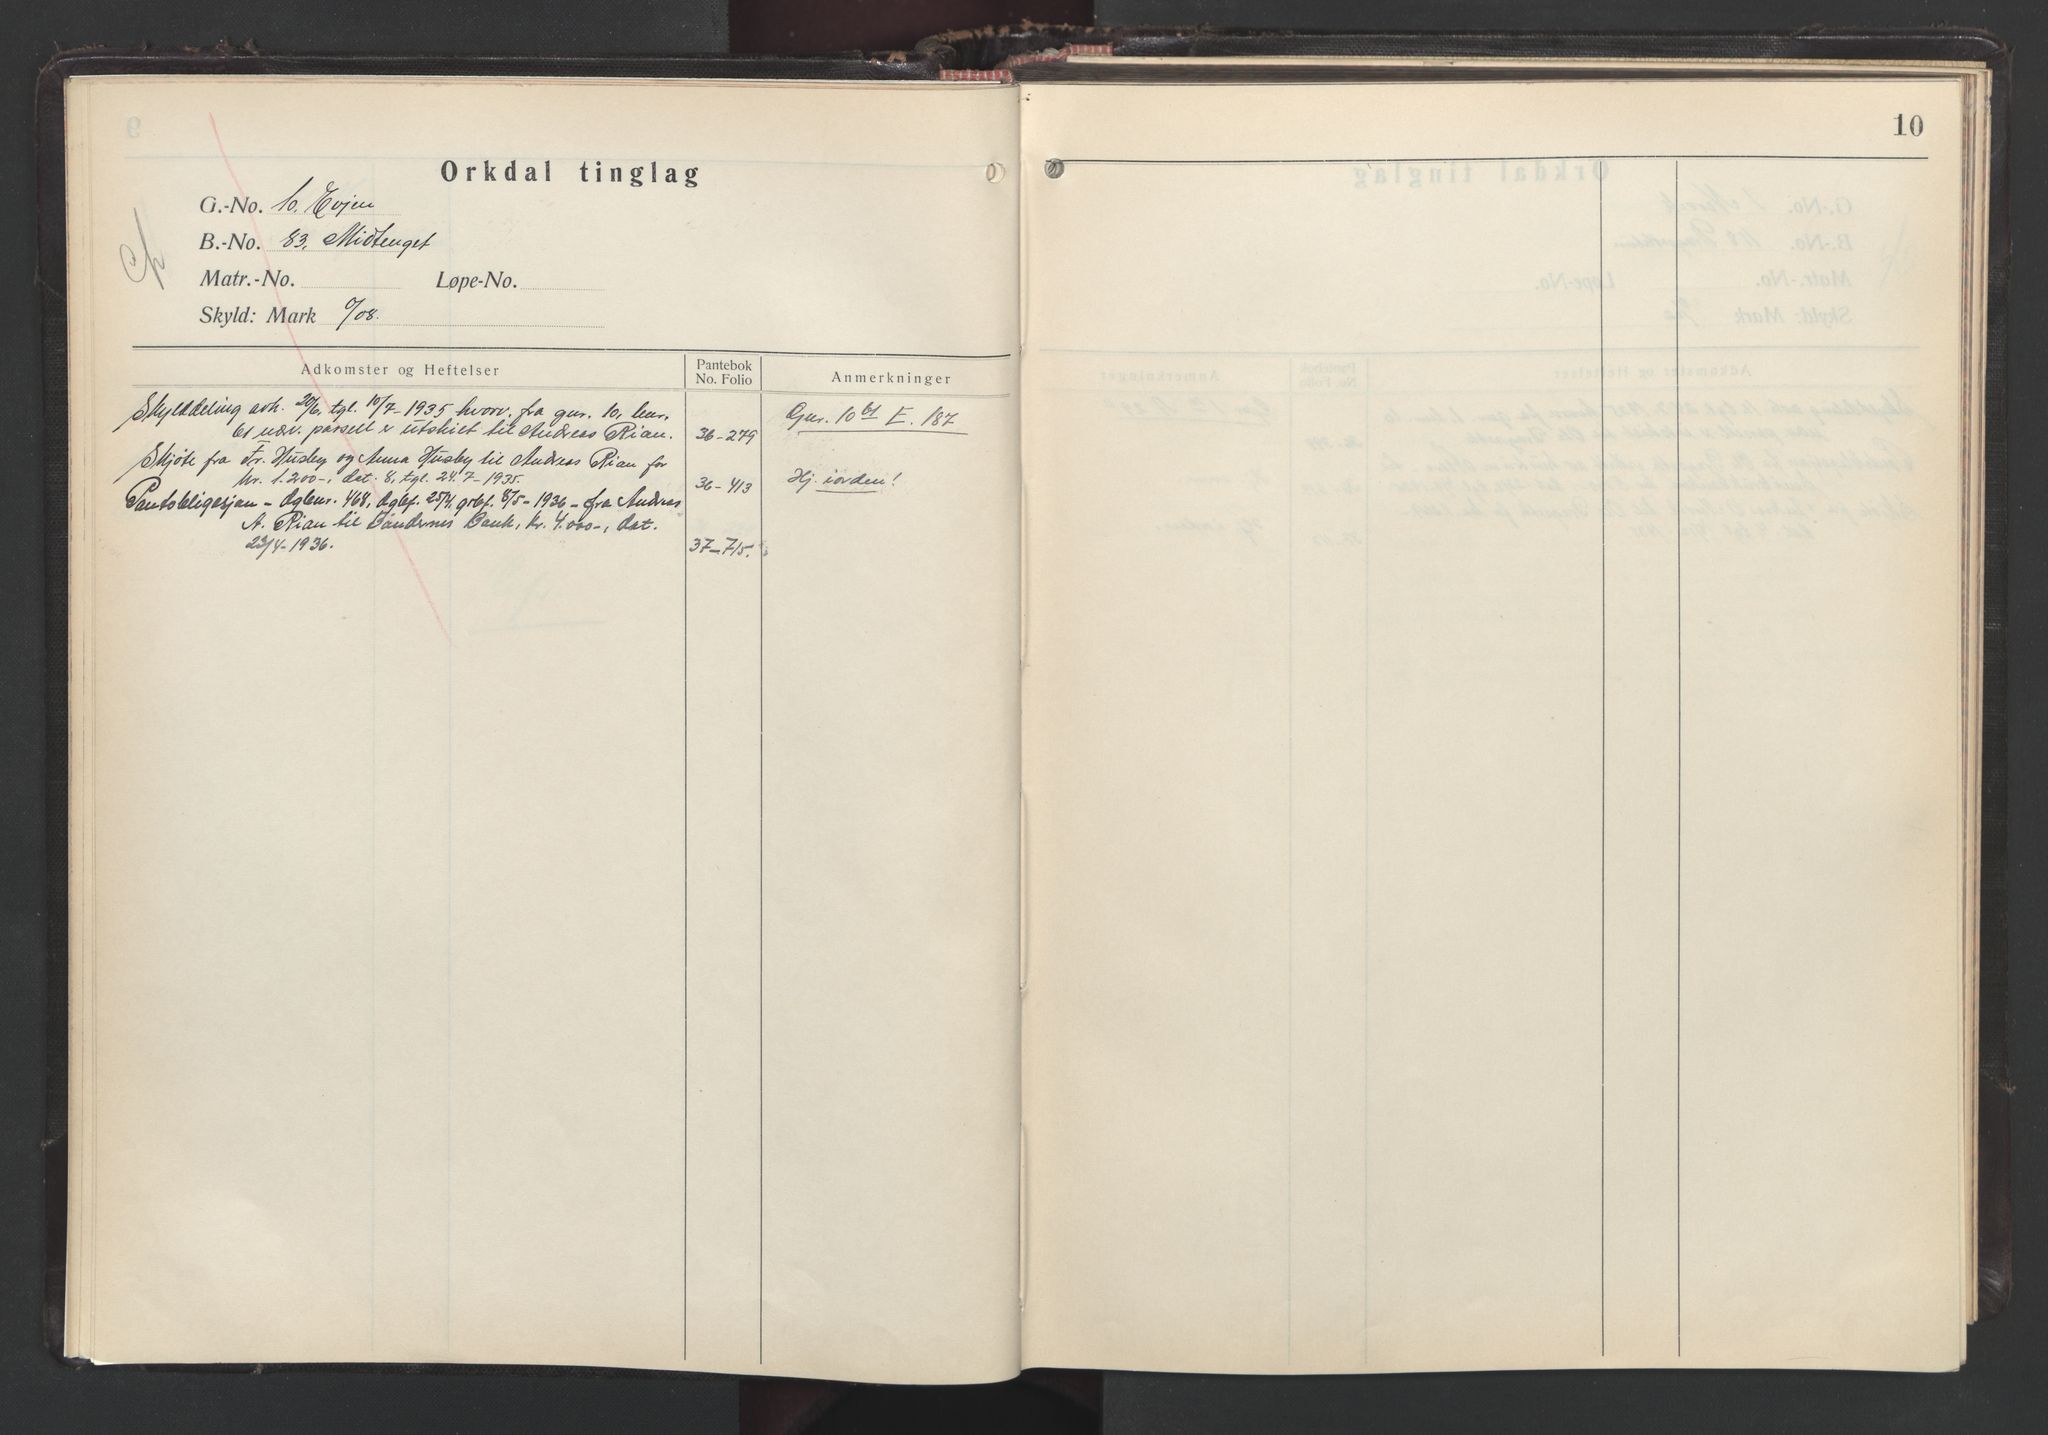 10
Orkdal tinglag
G.-No. 10. Evjen
B.-No. 83, Midtenget
Matr.-No. Løpe-No.
Skyld: Mark 0/08.
Adkomster og Heftelser Pantebok No. Folio Anmerkninger
Skylddeling avh. 20/6, tgl. 10/7-1935 hvorv. fra gnr. 10, bnr. Gnr. 10 61 I. 187
61 nærv. parsell er utskiet til Andreas Rian. 36-279
Skjøte fra Fr. Husby og Anna Husby til Andreas Rian for
kr. 1.200-, dat. 8, tgl. 24.7-1935. 36-413 Hj. iorden!
Pantobligasjon - Dagbnr. 468, dagbf. 25/4, grbf. 8/5-1936 - fra Andreas
A. Rian til Bøndernes Bank, kr. 4.000-, dat.
23/4-1936. 37-715.